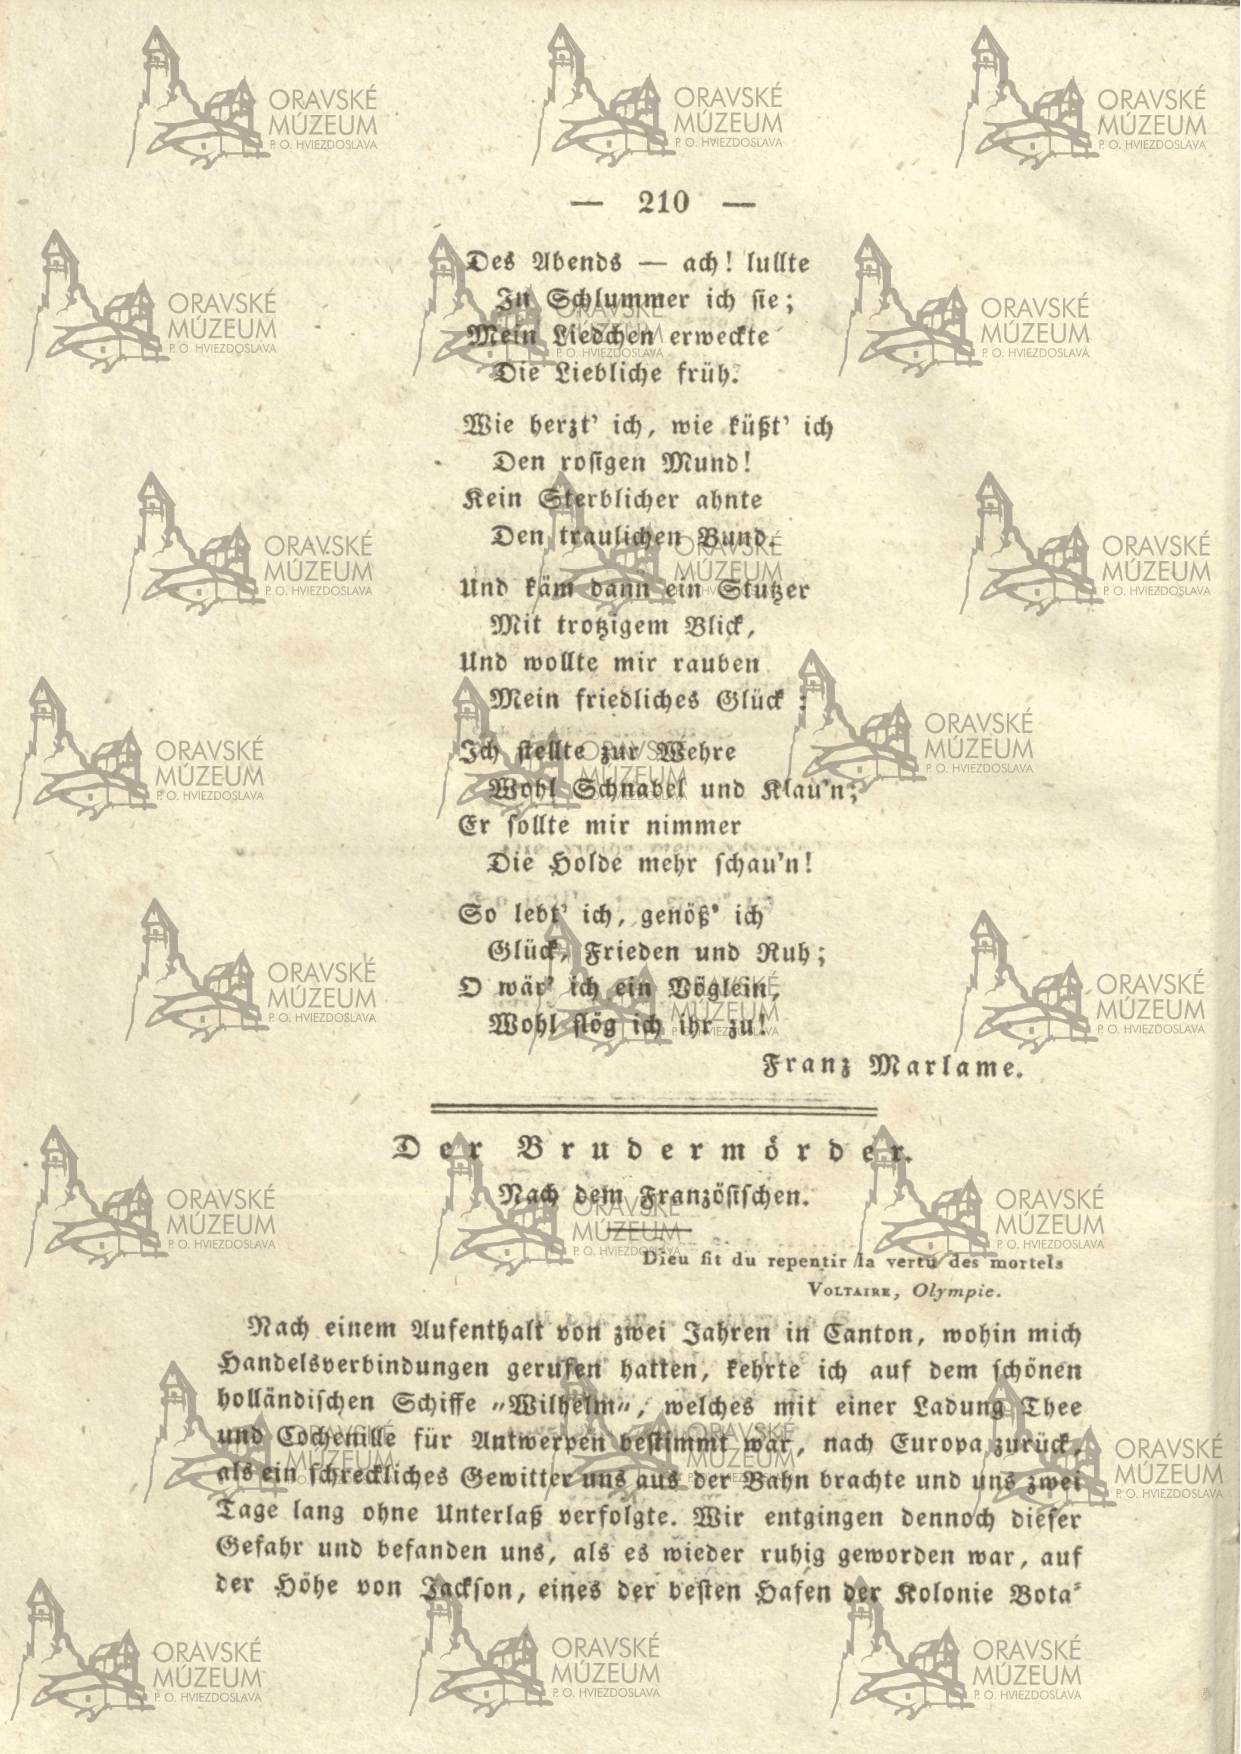 — 210 —
Des Abends — ach! lullte
In Schlummer ich sie;
Mein Liedchen erweckte
Die Liebliche früh.
Wie herzt' ich, wie küßt' ich
Den rosigen Mund!
Kein Sterblicher ahnte
Den traulichen Bund.
Und käm dann ein Stutzer
Mit trotzigem Blick,
Und wollte mir rauben
Mein friedliches Glück:
Ich stellte zur Wehre
Wohl Schnabel und Klau'n;
Er sollte mir nimmer
Die Holde mehr schau'n!
So lebt' ich, genöß' ich
Glück, Frieden und Ruh;
O wär' ich ein Vöglein,
Wohl flög ich ihr zu!
Franz Marlame.
Der Brudermörder.
Nach dem Französischen.
Dieu fit du repentir la vertu des mortels
VOLTAIRE, Olympie.
Nach einem Aufenthalt von zwei Jahren in Canton, wohin mich
Handelsverbindungen gerufen hatten, kehrte ich auf dem schönen
holländischen Schiffe „Wilhelm„, welches mit einer Ladung Thee
und Cochenille für Antwerpen bestimmt war, nach Europa zurück,
als ein schreckliches Gewitter uns aus der Bahn brachte und uns zwei
Tage lang ohne Unterlaß verfolgte. Wir entgingen dennoch dieser
Gefahr und befanden uns, als es wieder ruhig geworden war, auf
der Höhe von Jackson, eines der besten Hafen der Kolonie Bota-
ORAVSKÉ
MÚZEUM
P. O. HVIEZDOSLAVA